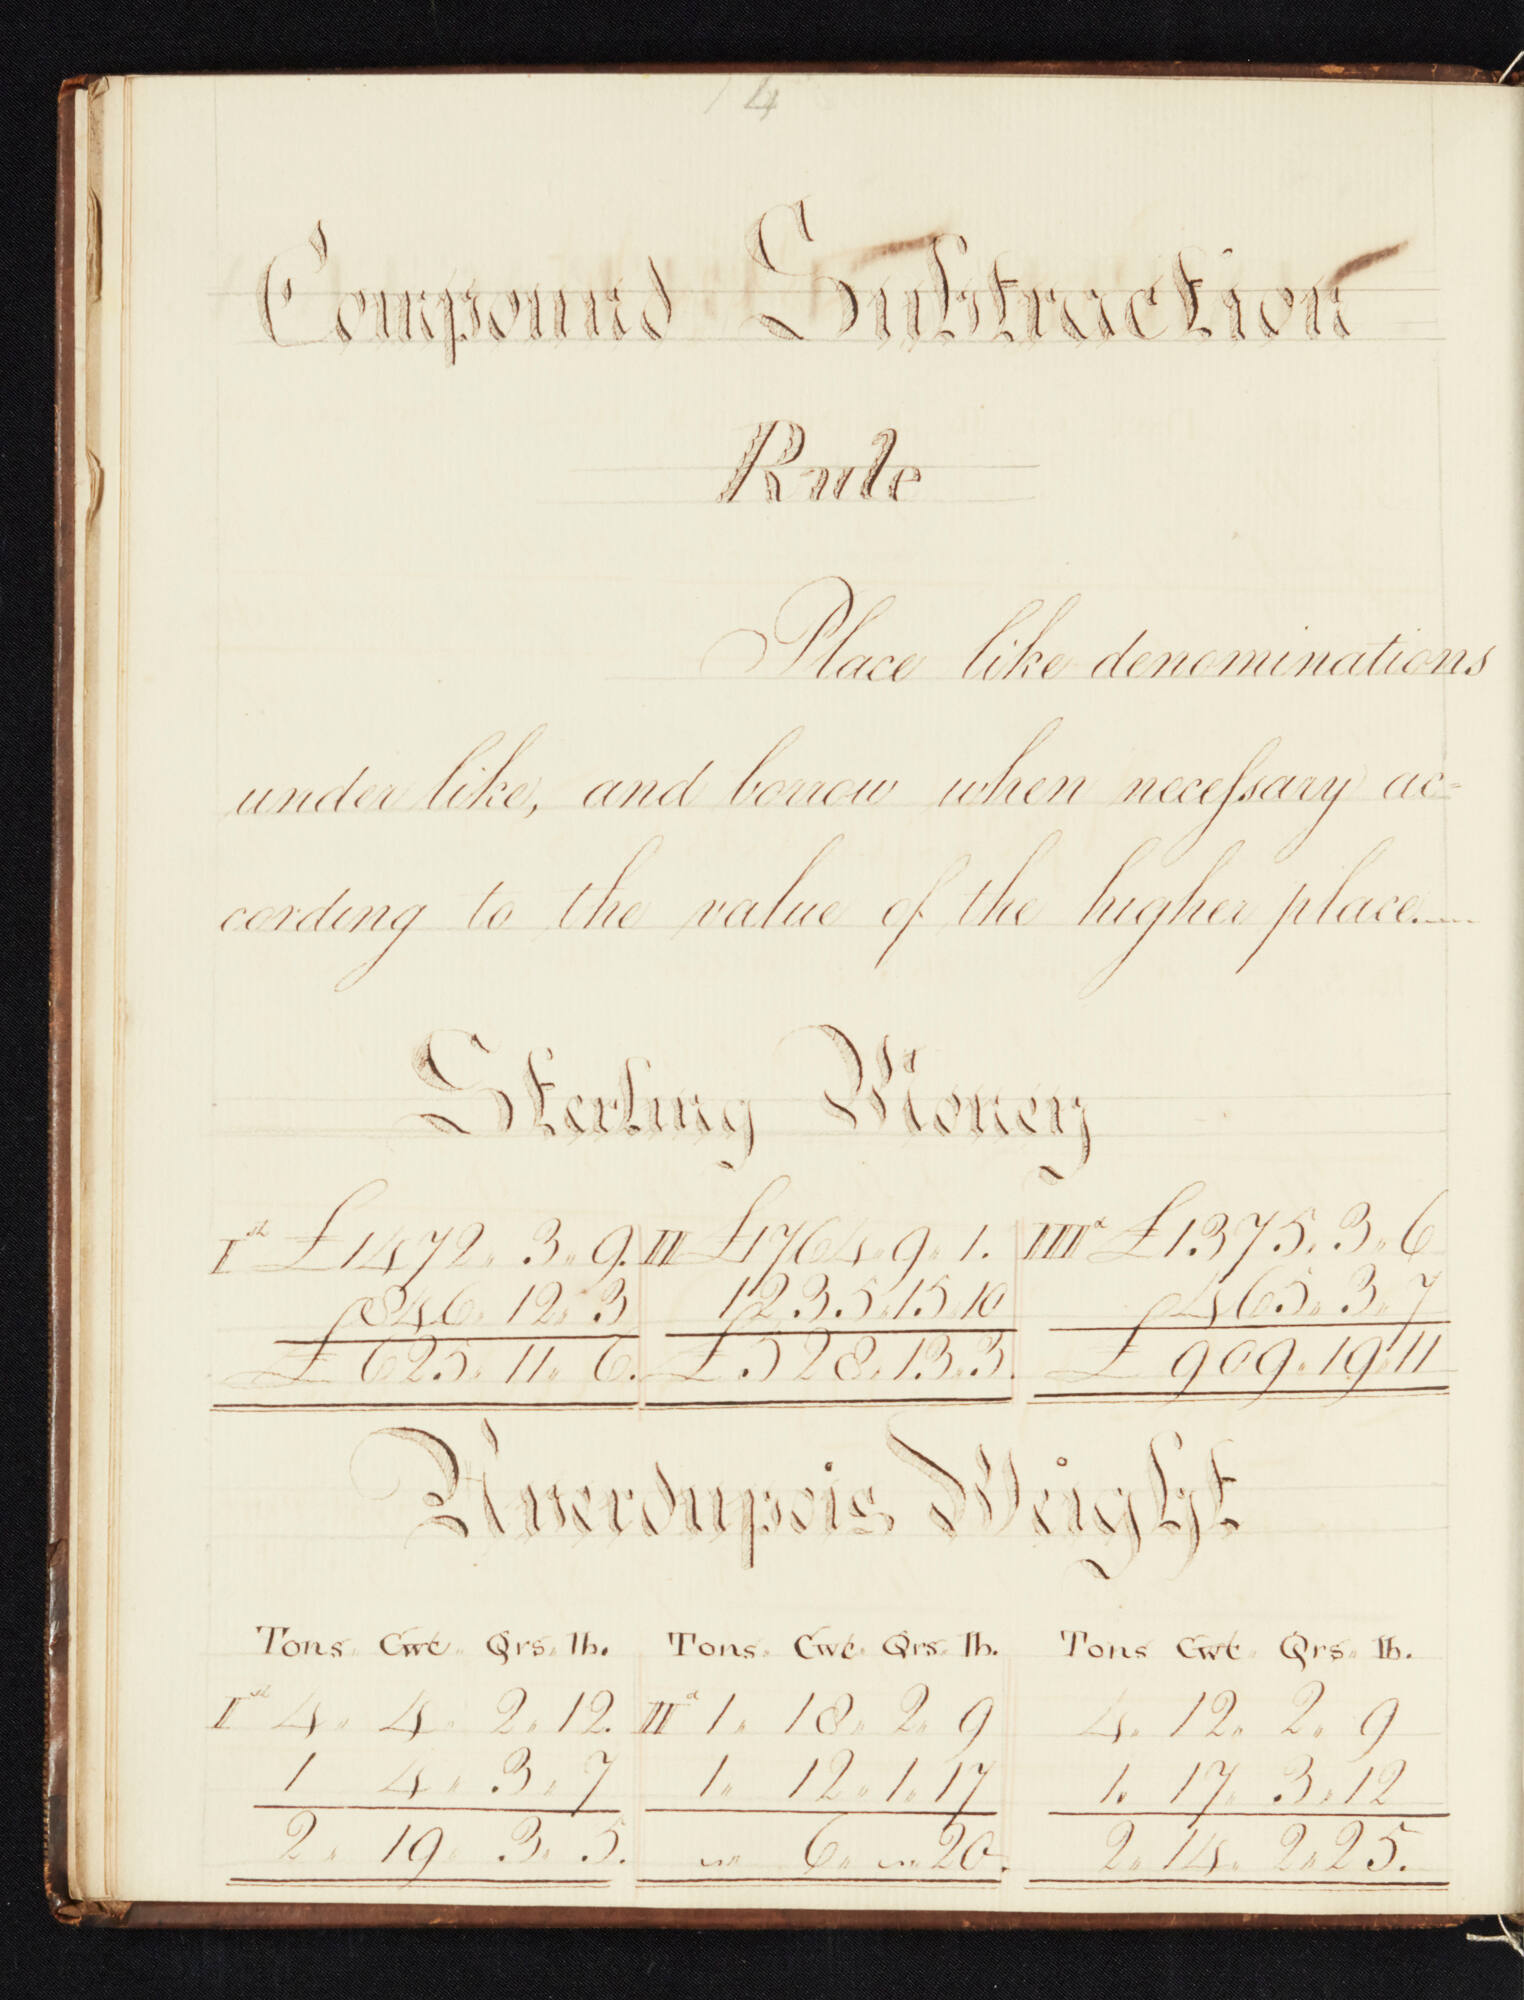 14
Compound Subtraction
Rule
Place like denominations
under like, and borrow when necessary ac=
cording to the value of the higher place.
Sterling Money
Ist £1472.. 3.. 9. II £1764.. 9.. 1. IIId £1375.. 3.. 6
846.. 12.. 3 1235.. 15.. 10 465.. 3.. 7
£ 625.. 11.. 6. £ 528.. 13.. 3. £ 909.. 19.. 11
Averdupois Weight
Tons.. Cwt.. Qrs.. lb. Tons.. Cwt.. Qrs.. lb. Tons Cwt.. Qrs.. lb.
Ist 4.. 4.. 2.. 12. IId 1.. 18.. 2.. 9 4.. 12.. 2.. 9
1 4.. 3.. 7 1.. 12.. 1.. 17 1.. 17.. 3.. 12
2.. 19.. 3.. 5. 6.. 20. 2.. 14.. 2.. 25.